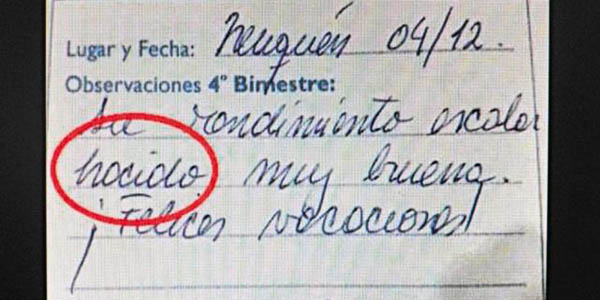 Lugar y Fecha: Neuquén 04/12.
Observaciones 4° Bimestre:
Su rendimiento escolar
hocido muy buena.
¡Felices vacaciones!